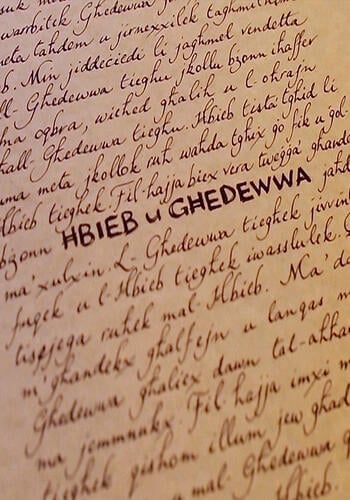 suk me
warbitek Ghedewwa
meta tahdem u jirnexxilek taghmilhom
b. Min jiddeciedi li jaghmel vendetta
ll- Ghedewwa tieghu jkollu bzonn ihaffer
ma oqbra, wiehed ghalih u l ohrajn
hall- Ghedewwa tieghu. Hbieb tista tghid li
uma meta jkollok ruh wahda tghix go fik u gol-
Hbieb tieghek. Fil-hajja biex vera twegga' ghandek
bzonn HBIEB u GHEDEWWA
ma'xulxin. L- Ghedewwa tieghek
fuqek u l-Hbieb tieghek iwasslulek.
tispjega ruhek mal-Hbieb. Ma' d
m'ghandekx ghalfejn u langas
Ghedewwa ghaliex dawn tal-ahhar
ma jemmnukx. Fil-hajja imxi m
tieghek qishom illum jew ghad
mal- Ghedewwa
Hbieb.